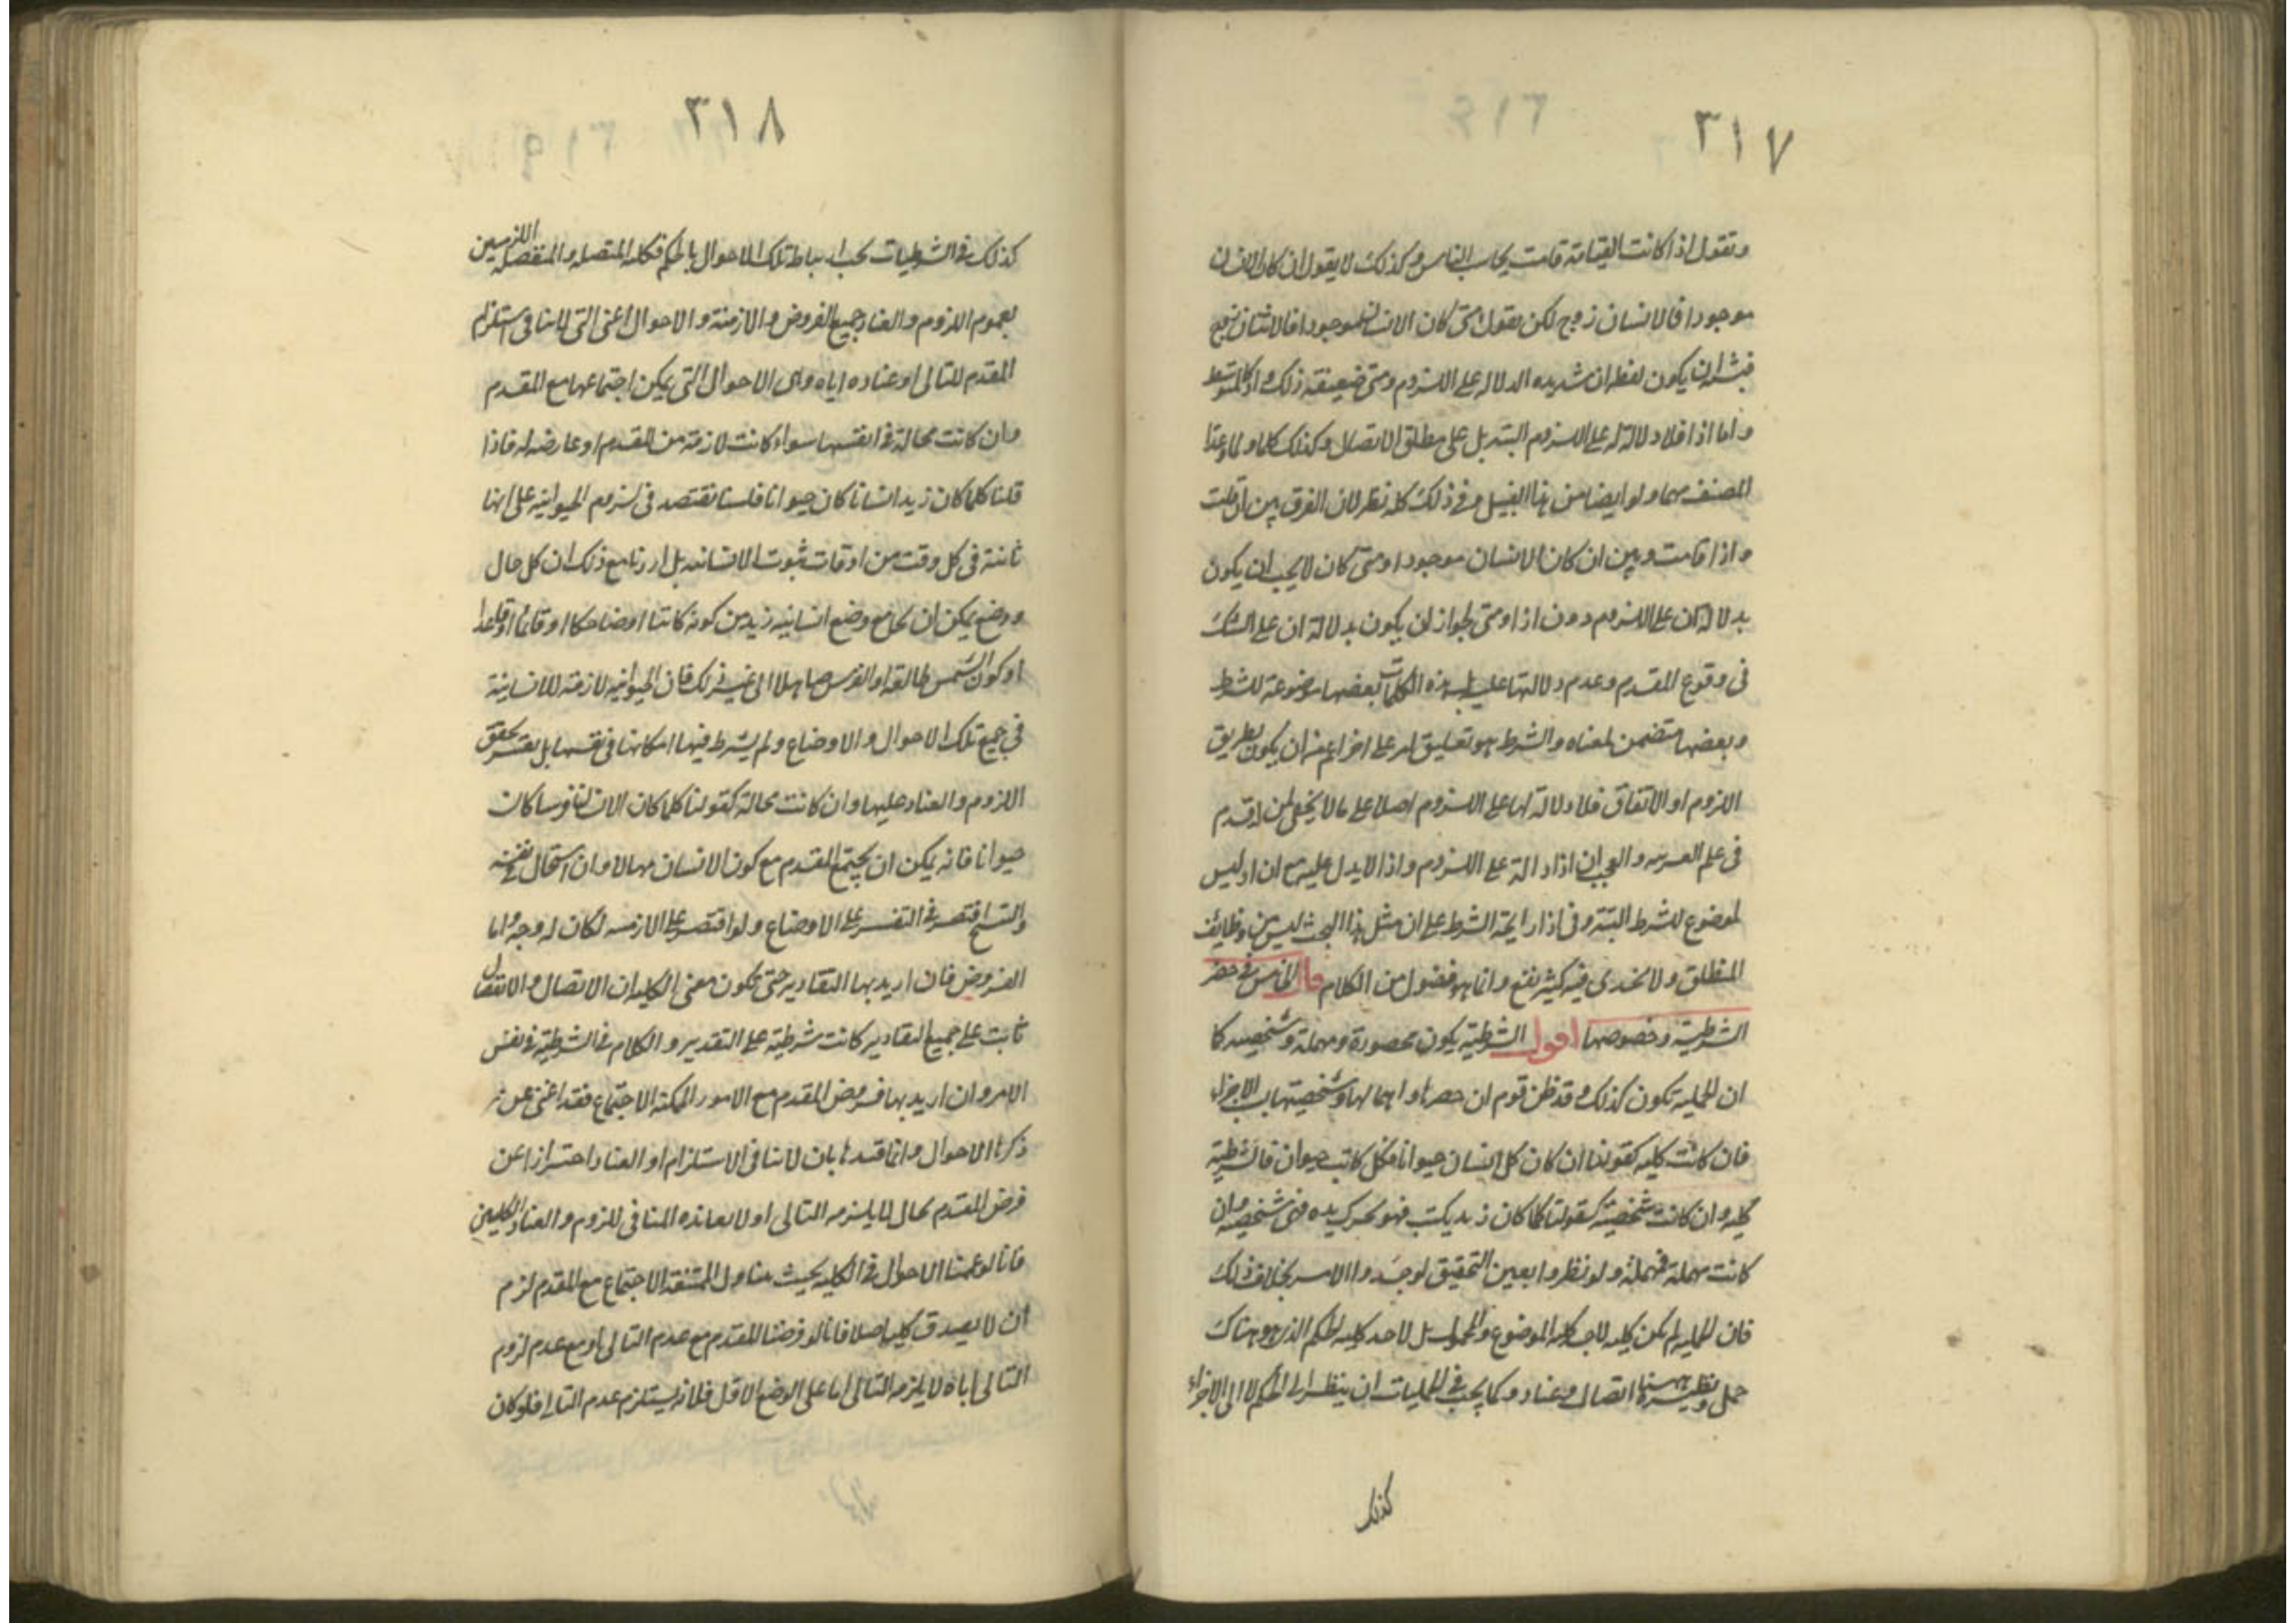 ٣١٧
وتقول اذا كانت القيامة قامت يحاسب الناس وكذلك لا يقول ان كان الانسان
موجودا فالانسان زوج لكن يقول متى كان الانسان موجودا فالاثنان زوج
فيشبه ان يكون لفظة ان شديدة الدلالة على اللزوم ومتى ضعيفة في ذلك واذ كالمتوسط
واما اذا فلا دلالة له على اللزوم البتة بل على مطلق الاتصال وكذلك كلما ولما وعدا
المصنف مهما ولو ايضا من هذا القبيل وفي ذلك كله نظر لان الفرق بين ان قامت
واذا قامت وبين ان كان الانسان موجودا ومتى كان لا يجب ان يكون
بدلالة ان على اللزوم دون اذا ومتى لجواز ان يكون بدلالة ان على الشك
في وقوع المقدم وعدم دلالتها عليه بل هذه الكلمات بعضها موضوعة للشرط
وبعضها متضمن لمعناه والشرط هو تعليق امر على اخر اعم من ان يكون بطريق
اللزوم او الاتفاق فلا دلالة لها على اللزوم اصلا على ما لا يخفى لمن له قدم
في علم العربيه والعجب ان اذ دالة على اللزوم واذا لا يدل عليه مع ان اذ ليس
لموضوع للشرط البتة وفي اذا رايحة الشرط على ان مثل هذا البحث ليس من وظايف
المنطق ولا يجدى فيه كثير نفع وانما هو فضول من الكلام قال الخامس في حصر
الشرطية وخصوصها اقول الشرطية يكون محصورة ومهملة وشخصيه كما
ان الحملية تكون كذلك وقد ظن قوم ان حصرها واهمالها وشخصيتها بسبب الاجزاء
فان كانت كليه كقولنا ان كان كل انسان حيوانا فكل كاتب حيوان فالشرطية
كليه وان كانت شخصية كقولنا كلما كان زيد يكتب فهو يحرك يده فهى شخصيه وان
كانت مهملة فمهملة ولو نظروا بعين التحقيق لوجدوا الامر بخلاف ذلك
فان الحمليه لم يكن كليه لاجل كلية الموضوع والمحمول بل لاجل كليه الحكم الذى هو هناك
حمل ونظيره ههنا اتصال وعناد وكما يجب في الحمليات ان ينظر الى الحكم لا الى الاجزاء
كذلك
٣١٨
كذلك في الشرطيات يجب ارتباط تلك الاحوال بالحكم فكلية المتصله والمنفصله اللزوميين
بعموم اللزوم والعناد جميع الفروض والازمنة والاحوال اعنى التى لا ينافى استلزام
المقدم للتالى او عناده اياه وهى الاحوال التى يمكن اجتماعها مع المقدم
وان كانت محالة في انفسها سواء كانت لازمة من المقدم او عارضه له فاذا
قلنا كلما كان زيد انسانا كان حيوانا فلسنا نقتصد في لزوم الحيوانية على انها
ثابتة في كل وقت من اوقات ثبوت الانسانيه بل اردنا مع ذلك ان كل حال
ووضع يمكن ان يجامع وضع انسانيه زيد من كونه كاتبا او ضاحكا او قائما او قاعدا
او كون الشمس طالعة او الفرس صاهلا الى غير ذلك فان الحيوانيه لازمة للانسانية
في جميع تلك الاحوال والاوضاع ولم يشرط فيها امكانها في نفسها بل يعتبر تحقق
اللزوم والعناد عليها وان كانت محالة كقولنا كلما كان الانسان فرسا كان
حيوانا فانه يمكن ان يجتمع المقدم مع كون الانسان صهالا وان استحال في نفسه
والشيخ اقتصر في التفسير على الاوضاع ولو اقتصر على الازمنه لكان له وجه واما
الفروض فان اريد بها التقادير حتى تكون معنى الكليه ان الاتصال والانفصال
ثابت على جميع التقادير كانت شرطية على التقدير والكلام في الشرطية في نفس
الامر وان اريد بها فروض المقدم مع الامور الممكنة الاجتماع فقد اغنى عن
ذكرها الاحوال وانما قيدها بان لا ينافى الاستلزام او العناد احترازا عن
فرض المقدم بحال لا يلزمه التالى او لا يعانده المنافى للزوم والعناد الكليين
فانا لو عممنا الاحوال في الكليه بحيث يتناول الممتنعة الاجتماع مع المقدم لزم
ان لا يصدق كليه اصلا فانا لو فرضنا المقدم مع عدم التالى او مع عدم لزوم
التالى اياه لا يلزمه التالى اما على الوضع الاول فلانه يستلزم عدم التالى فلو كان